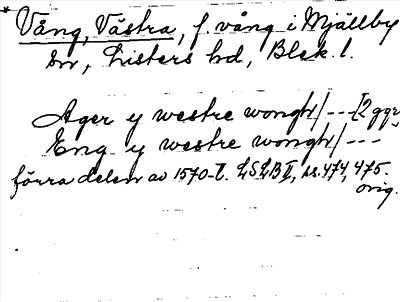 * Vång, Västra, f. vång i Mjällby
sn, Listers hd, Blek. l.
Ager y westre wongh/---[2 ggr]
Eng y westre wongh/---
förra delen av 1570-t. LSLB II, ss. 474, 475.
orig.